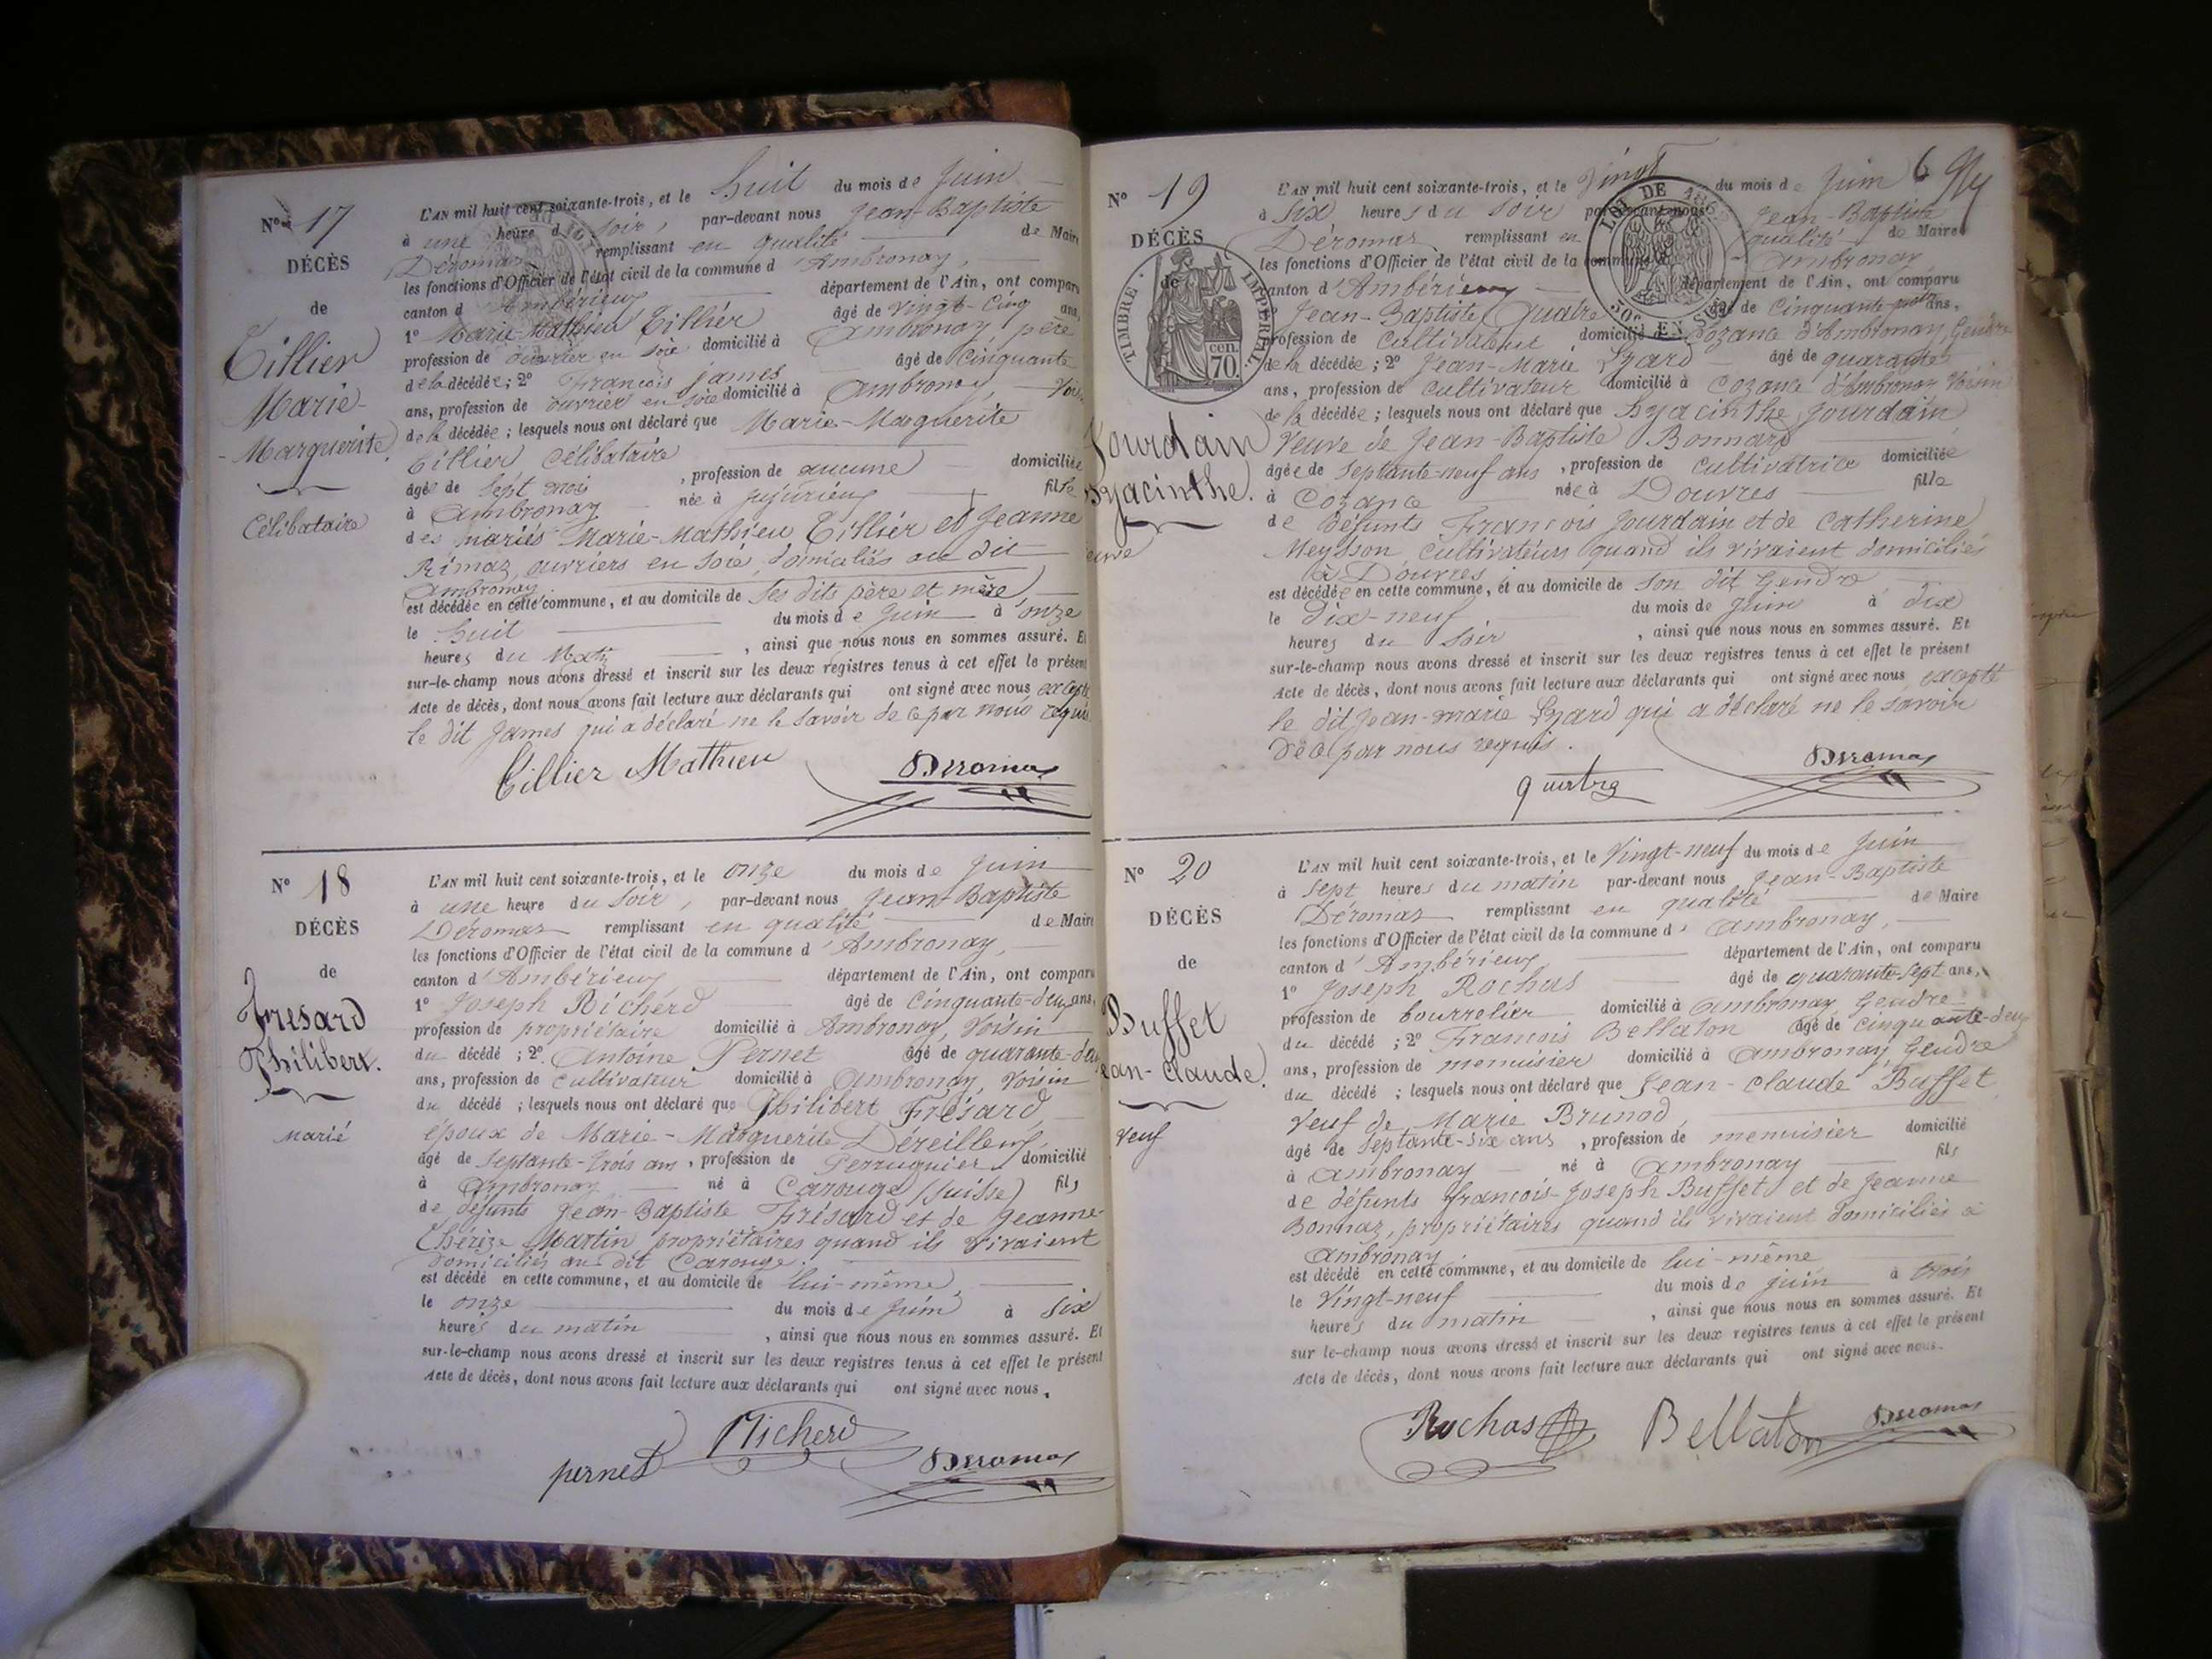 Nº 17
DÉCÈS
de
Tillier
Marie-
Marguerite
Célibataire
L'AN mil huit cent soixante-trois, et le huit du mois de Juin
à une heure du soir, par-devant nous Jean-Baptiste
Déromas remplissant en qualité de Maire
les fonctions d'Officier de l'état civil de la commune d'Ambronay,
canton d'Ambérieux département de l'Ain, ont comparu
1º Marie-Mathieu Tillier âgé de vingt-cinq ans,
profession de ouvrier en soie domicilié à Ambronay père
de la décédée; 2º François James âgé de cinquante
ans, profession de ouvrier en soie domicilié à Ambronay,
de la décédée; lesquels nous ont déclaré que Marie-Marguerite
Tillier, Célibataire
âgée de sept mois, profession de aucune domiciliée
à Ambronay née à Jujurieux fille
des mariés Marie-Mathieu Tillier et Jeanne
Rimaz, ouvriers en soie, domiciliés au dit
Ambronay
est décédée en cette commune, et au domicile de ses dits père et mère,
le huit du mois de Juin à onze
heures du Matin, ainsi que nous nous en sommes assuré. Et
sur-le-champ nous avons dressé et inscrit sur les deux registres tenus à cet effet le présent
Acte de décès, dont nous avons fait lecture aux déclarants qui ont signé avec nous excepté
le dit James qui a déclaré ne le savoir de ce par nous requis
Tillier Mathieu Deromas
Nº 18
DÉCÈS
de
Frésard
Philibert.
marié
L'AN mil huit cent soixante-trois, et le onze du mois de Juin
à une heure du soir, par-devant nous Jean-Baptiste
Déromas remplissant en qualité de Maire
les fonctions d'Officier de l'état civil de la commune d'Ambronay,
canton d'Ambérieux département de l'Ain, ont comparu
1º Joseph Richerd âgé de cinquante-deux ans,
profession de propriétaire domicilié à Ambronay, Voisin
du décédé; 2º Antoine Pernet âgé de quarante-deux
ans, profession de cultivateur domicilié à Ambronay, Voisin
du décédé; lesquels nous ont déclaré que Philibert Frésard,
époux de Marie-Marguerite
âgé de septante-trois ans, profession de Perruquier domicilié
à Ambronay né à Carouge (Suisse) fils
de défunts Jean-Baptiste Frésard et de Jeanne-
Thérèze Martin propriétaires quand ils vivaient
domiciliés au dit Carouge.
est décédé en cette commune, et au domicile de lui-même,
le onze du mois de Juin à six
heures du matin, ainsi que nous nous en sommes assuré. Et
sur-le-champ nous avons dressé et inscrit sur les deux registres tenus à cet effet le présent
Acte de décès, dont nous avons fait lecture aux déclarants qui ont signé avec nous.
pernet Richerd Deromas
6
Nº 19
DÉCÈS
de
TIMBRE IMPÉRIAL
70 cen.
LOI DE 1862
50c EN SUS
Jourdain
Hyacinthe.
veuve
L'AN mil huit cent soixante-trois, et le vingt du mois de Juin
à six heures du soir par-devant nous Jean-Baptiste
Déromas remplissant en qualité de Maire
les fonctions d'Officier de l'état civil de la commune d'Ambronay
canton d'Ambérieux département de l'Ain, ont comparu
Jean-Baptiste Quatre âgé de cinquante ans,
profession de cultivateur domicilié à Cozance d'Ambronay, Gendre
de la décédée; 2º Jean-Marie Lyard âgé de quarante
ans, profession de cultivateur domicilié à Cozance d'Ambronay Voisin
de la décédée; lesquels nous ont déclaré que Hyacinthe Jourdain
Veuve de Jean-Baptiste Bonnard
âgée de septante-neuf ans, profession de cultivatrice domiciliée
à Cozance née à Douvres fille
de défunts François Jourdain et de Catherine
Meysson cultivateurs quand ils vivaient domiciliés
à Douvres
est décédée en cette commune, et au domicile de son dit Gendre
le dix-neuf du mois de Juin à dix
heures du soir, ainsi que nous nous en sommes assuré. Et
sur-le-champ nous avons dressé et inscrit sur les deux registres tenus à cet effet le présent
Acte de décès, dont nous avons fait lecture aux déclarants qui ont signé avec nous excepté
le dit Jean-Marie Lyard qui a déclaré ne le savoir
de ce par nous requis.
quatre Deromas
Nº 20
DÉCÈS
de
Buffet
Jean-Claude.
Veuf
L'AN mil huit cent soixante-trois, et le vingt-neuf du mois de Juin
à sept heures du matin par-devant nous Jean-Baptiste
Déromas remplissant en qualité de Maire
les fonctions d'Officier de l'état civil de la commune d'Ambronay,
canton d'Ambérieux département de l'Ain, ont comparu
1º Joseph Rochas âgé de quarante-sept ans,
profession de bourrelier domicilié à Ambronay, Gendre
du décédé; 2º François Bellaton âgé de cinquante-deux
ans, profession de menuisier domicilié à Ambronay, Gendre
du décédé; lesquels nous ont déclaré que Jean-Claude Buffet,
Veuf de Marie Brunod
âgé de septante-six ans, profession de menuisier domicilié
à Ambronay né à Ambronay fils
de défunts François-Joseph Buffet et de Jeanne
Bonnaz, propriétaires quand ils vivaient domiciliés à
Ambronay
est décédé en cette commune, et au domicile de lui-même
le vingt-neuf du mois de Juin à trois
heures du matin, ainsi que nous nous en sommes assuré. Et
sur le-champ nous avons dressé et inscrit sur les deux registres tenus à cet effet le présent
Acte de décès, dont nous avons fait lecture aux déclarants qui ont signé avec nous.
Rochas Bellaton Deromas